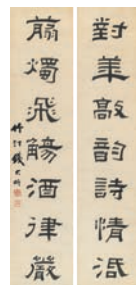 對敲韵詩情
翦燭飛觴酒律嚴
竹汀錢大昕